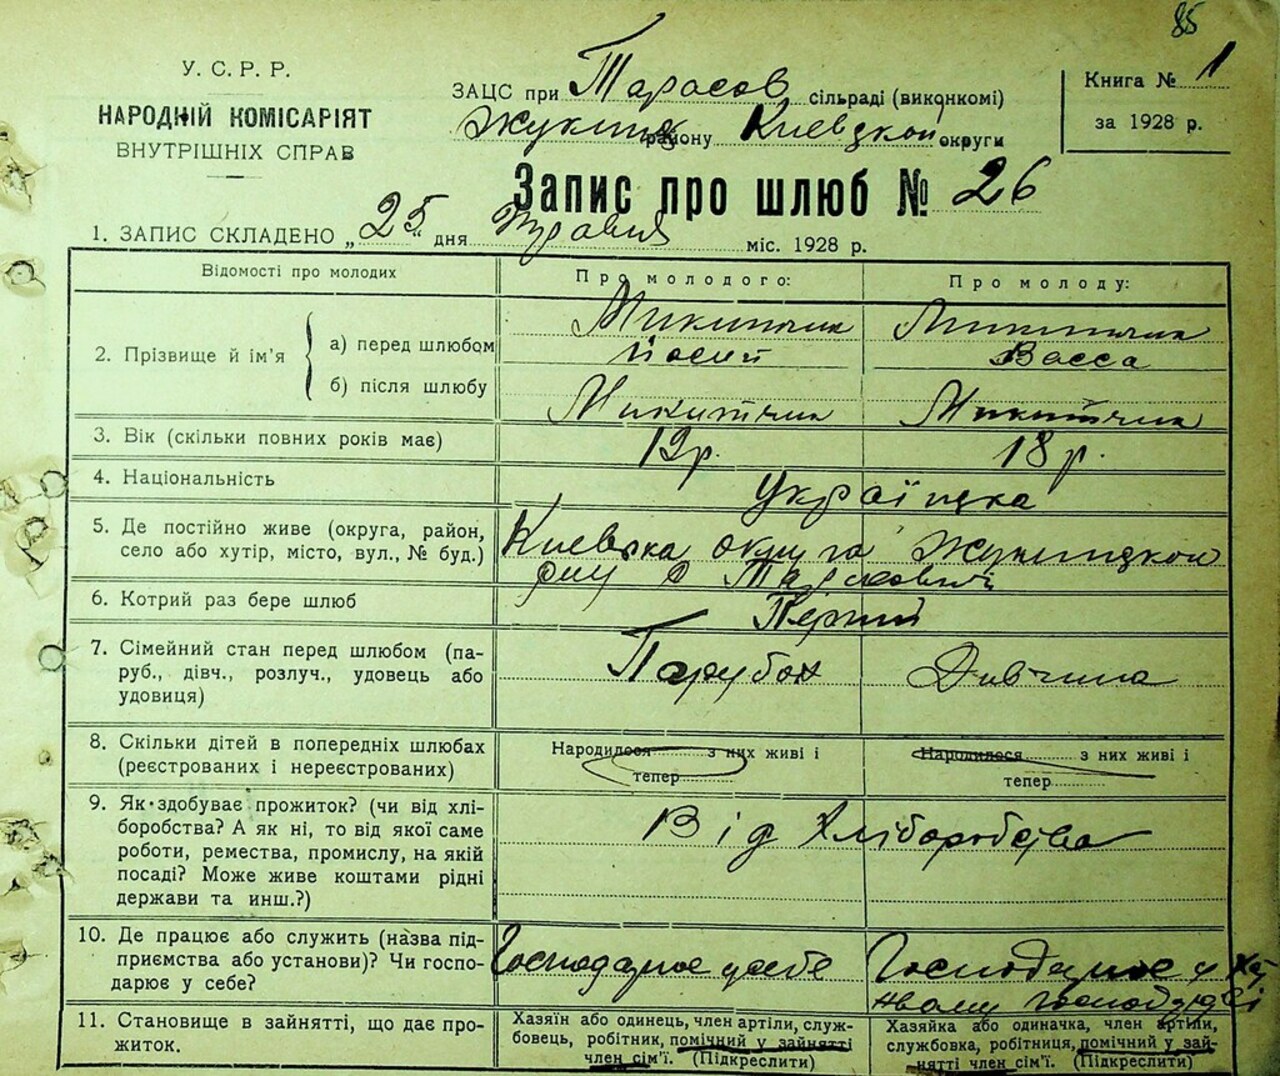 85
У. С. Р. Р.
НАРОДНІЙ КОМІСАРІЯТ
ВНУТРІШНІХ СПРАВ
ЗАЦС при Тарасов сільраді (виконкомі)
району Киевской округи
Книга № 1
за 1928 р.
Запис про шлюб № 26
1. ЗАПИС СКЛАДЕНО „ 25 “ дня Травня міс. 1928 р.
Відомості про молодих
Про молодого:
Про молоду:
2. Прізвище й ім'я
а) перед шлюбом
Микитчик
Йосип
Микитчик
Васса
б) після шлюбу
Микитчик
Микитчик
3. Вік (скільки повних років має)
19р.
18 р.
4. Національність
Українка
5. Де постійно живе (округа, район,
село або хутір, місто, вул., № буд.)
Киевска округа
6. Котрий раз бере шлюб
Перший
7. Сімейний стан перед шлюбом (па-
руб., дівч., розлуч., удовець або
удовиця)
Парубок
Дивчина
8. Скільки дітей в попередніх шлюбах
(реєстрованих і нереєстрованих)
Народилося з них живі і
тепер
Народилося з них живі і
тепер
9. Як здобуває прожиток? (чи від хлі-
боробства? А як ні, то від якої саме
роботи, ремества, промислу, на якій
посаді? Може живе коштами рідні
держави та инш.?)
Від Хліборобства
10. Де працює або служить (назва під-
приємства або установи)? Чи госпо-
дарює у себе?
Господарює у себе
Господарює у
11. Становище в зайнятті, що дає про-
житок.
Хазяїн або одинець, член артіли, служ-
бовець, робітник, помічний у зайнятті
член сім'ї. (Підкреслити)
Хазяйка або одиначка, член артіли,
службовка, робітниця, помічний у зай-
нятті член сім'ї. (Підкреслити)